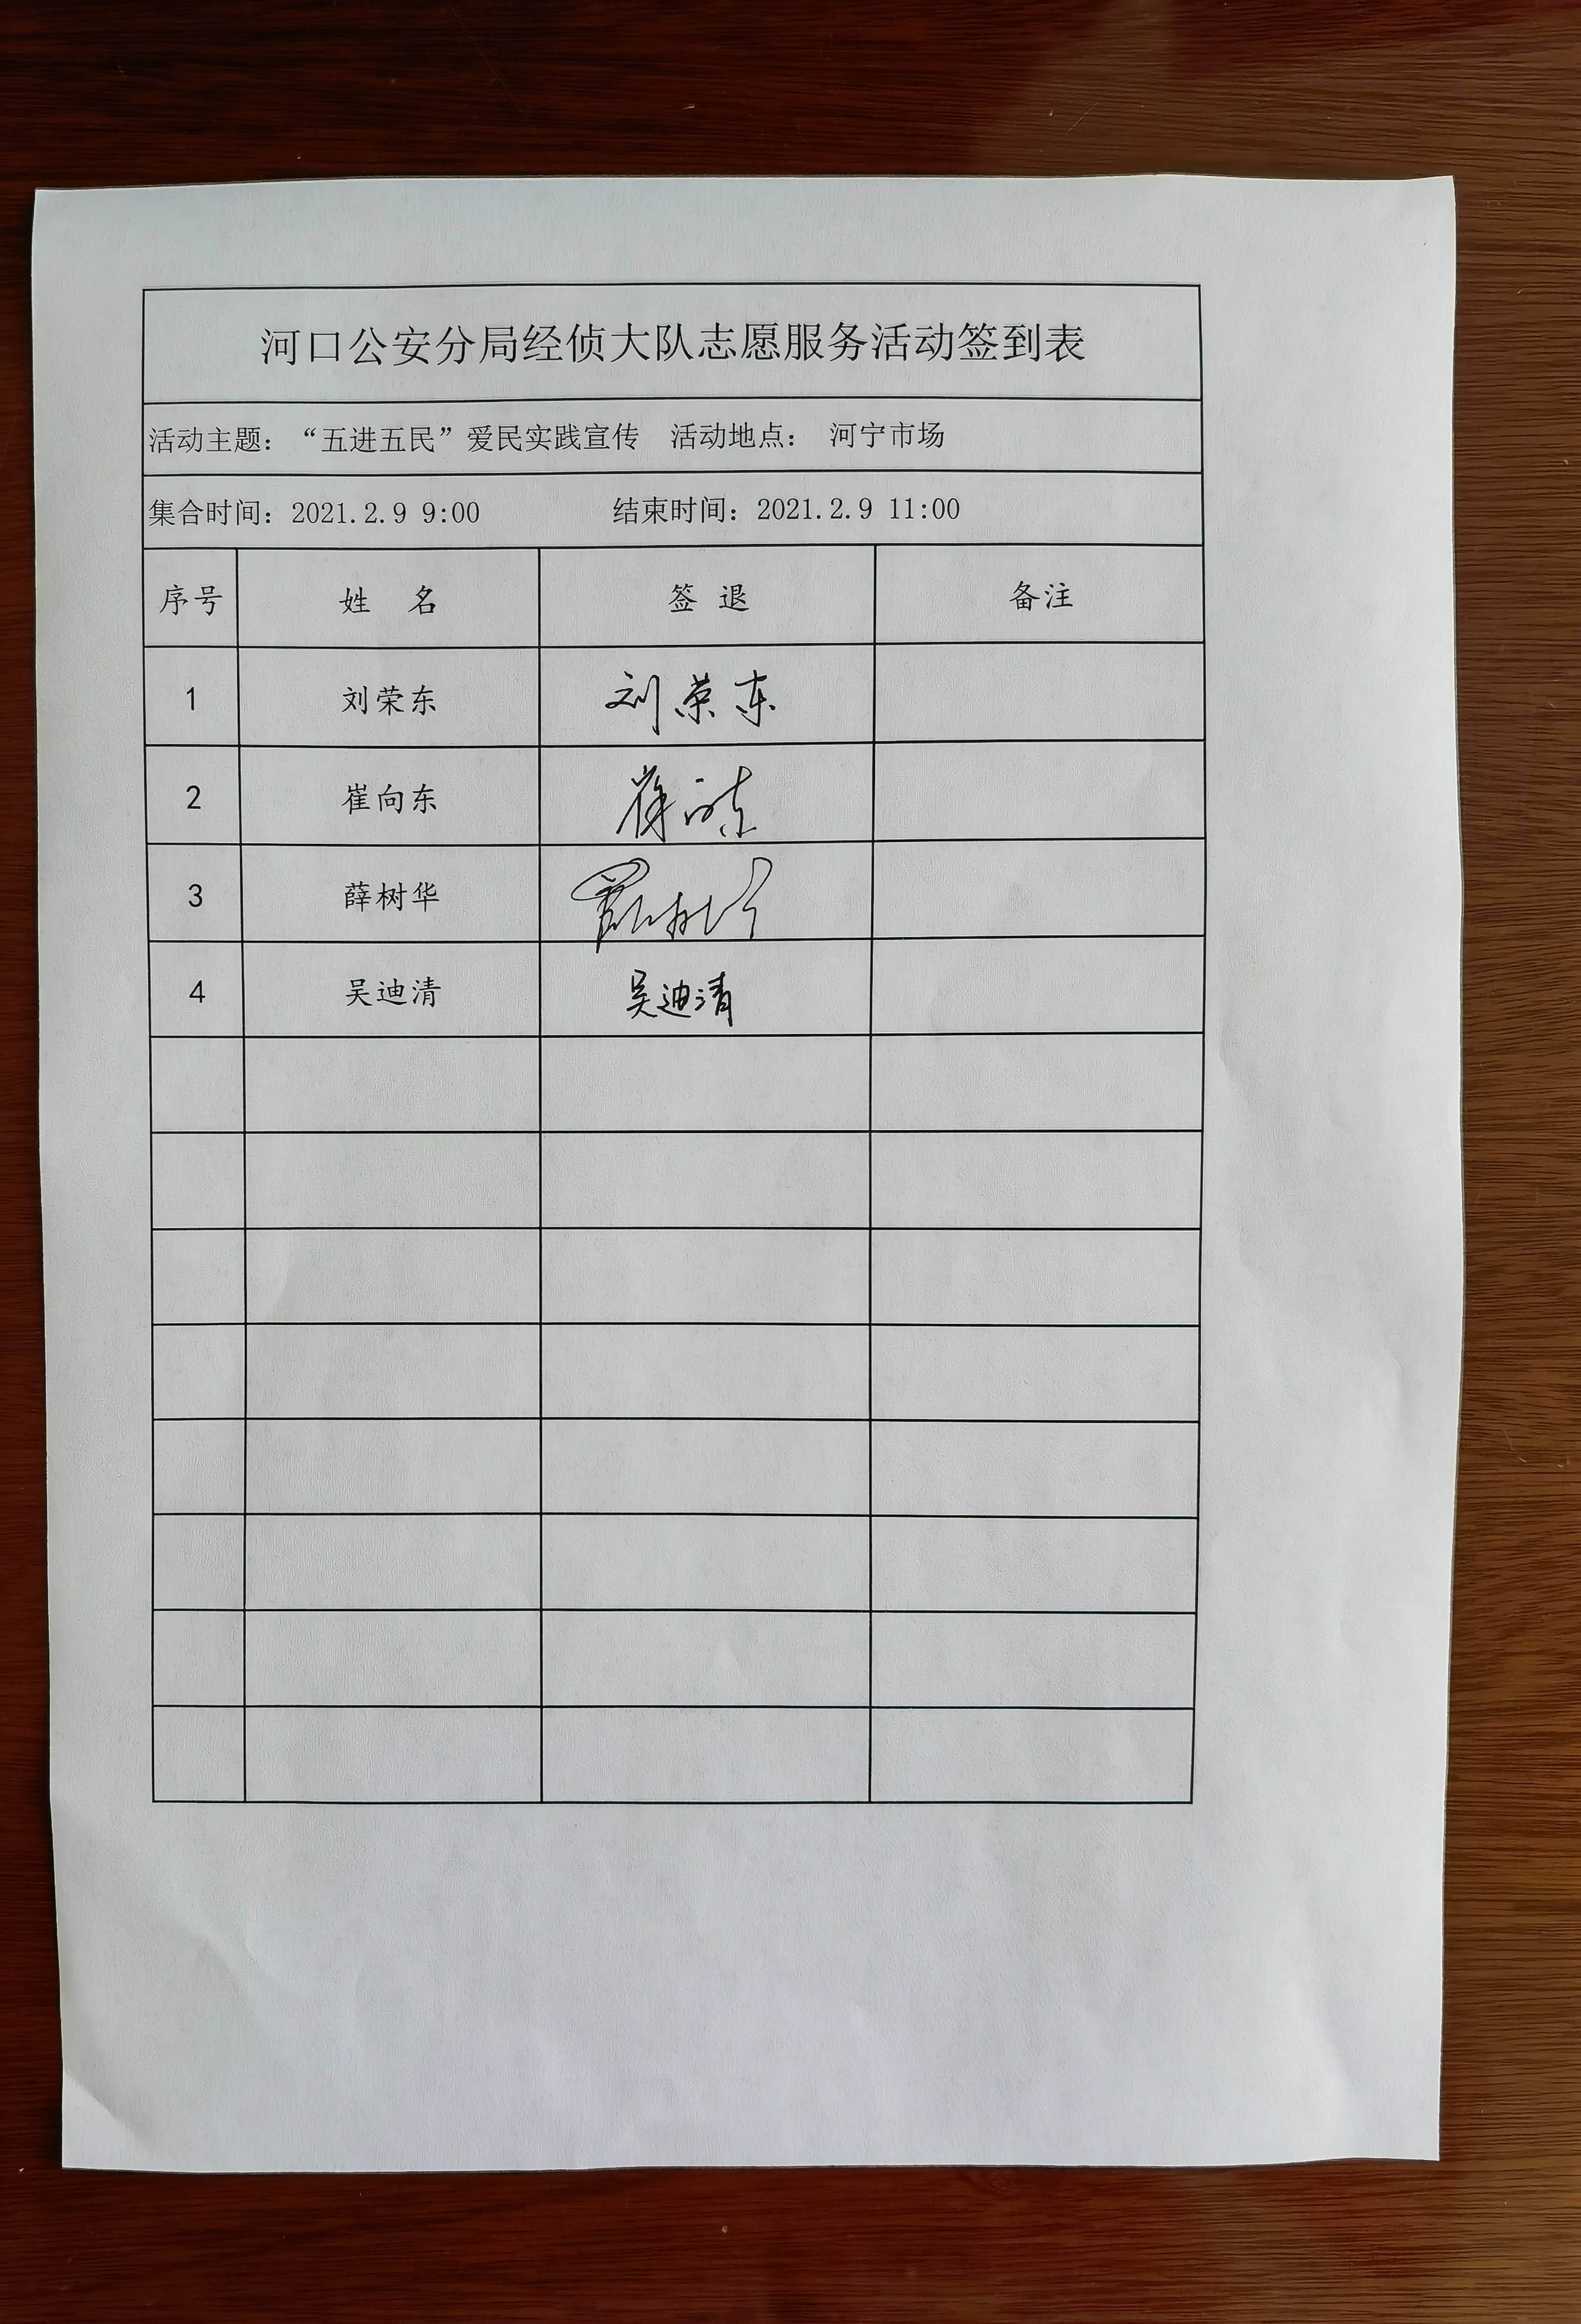 河口公安分局经侦大队志愿服务活动签到表
活动主题：“五进五民”爱民实践宣传 活动地点： 河宁市场
集合时间：2021.2.9 9:00 结束时间：2021.2.9 11:00
序号 姓 名 签 退 备注
1 刘荣东 刘荣东
2 崔向东 崔向东
3 薛树华 薛树华
4 吴迪清 吴迪清